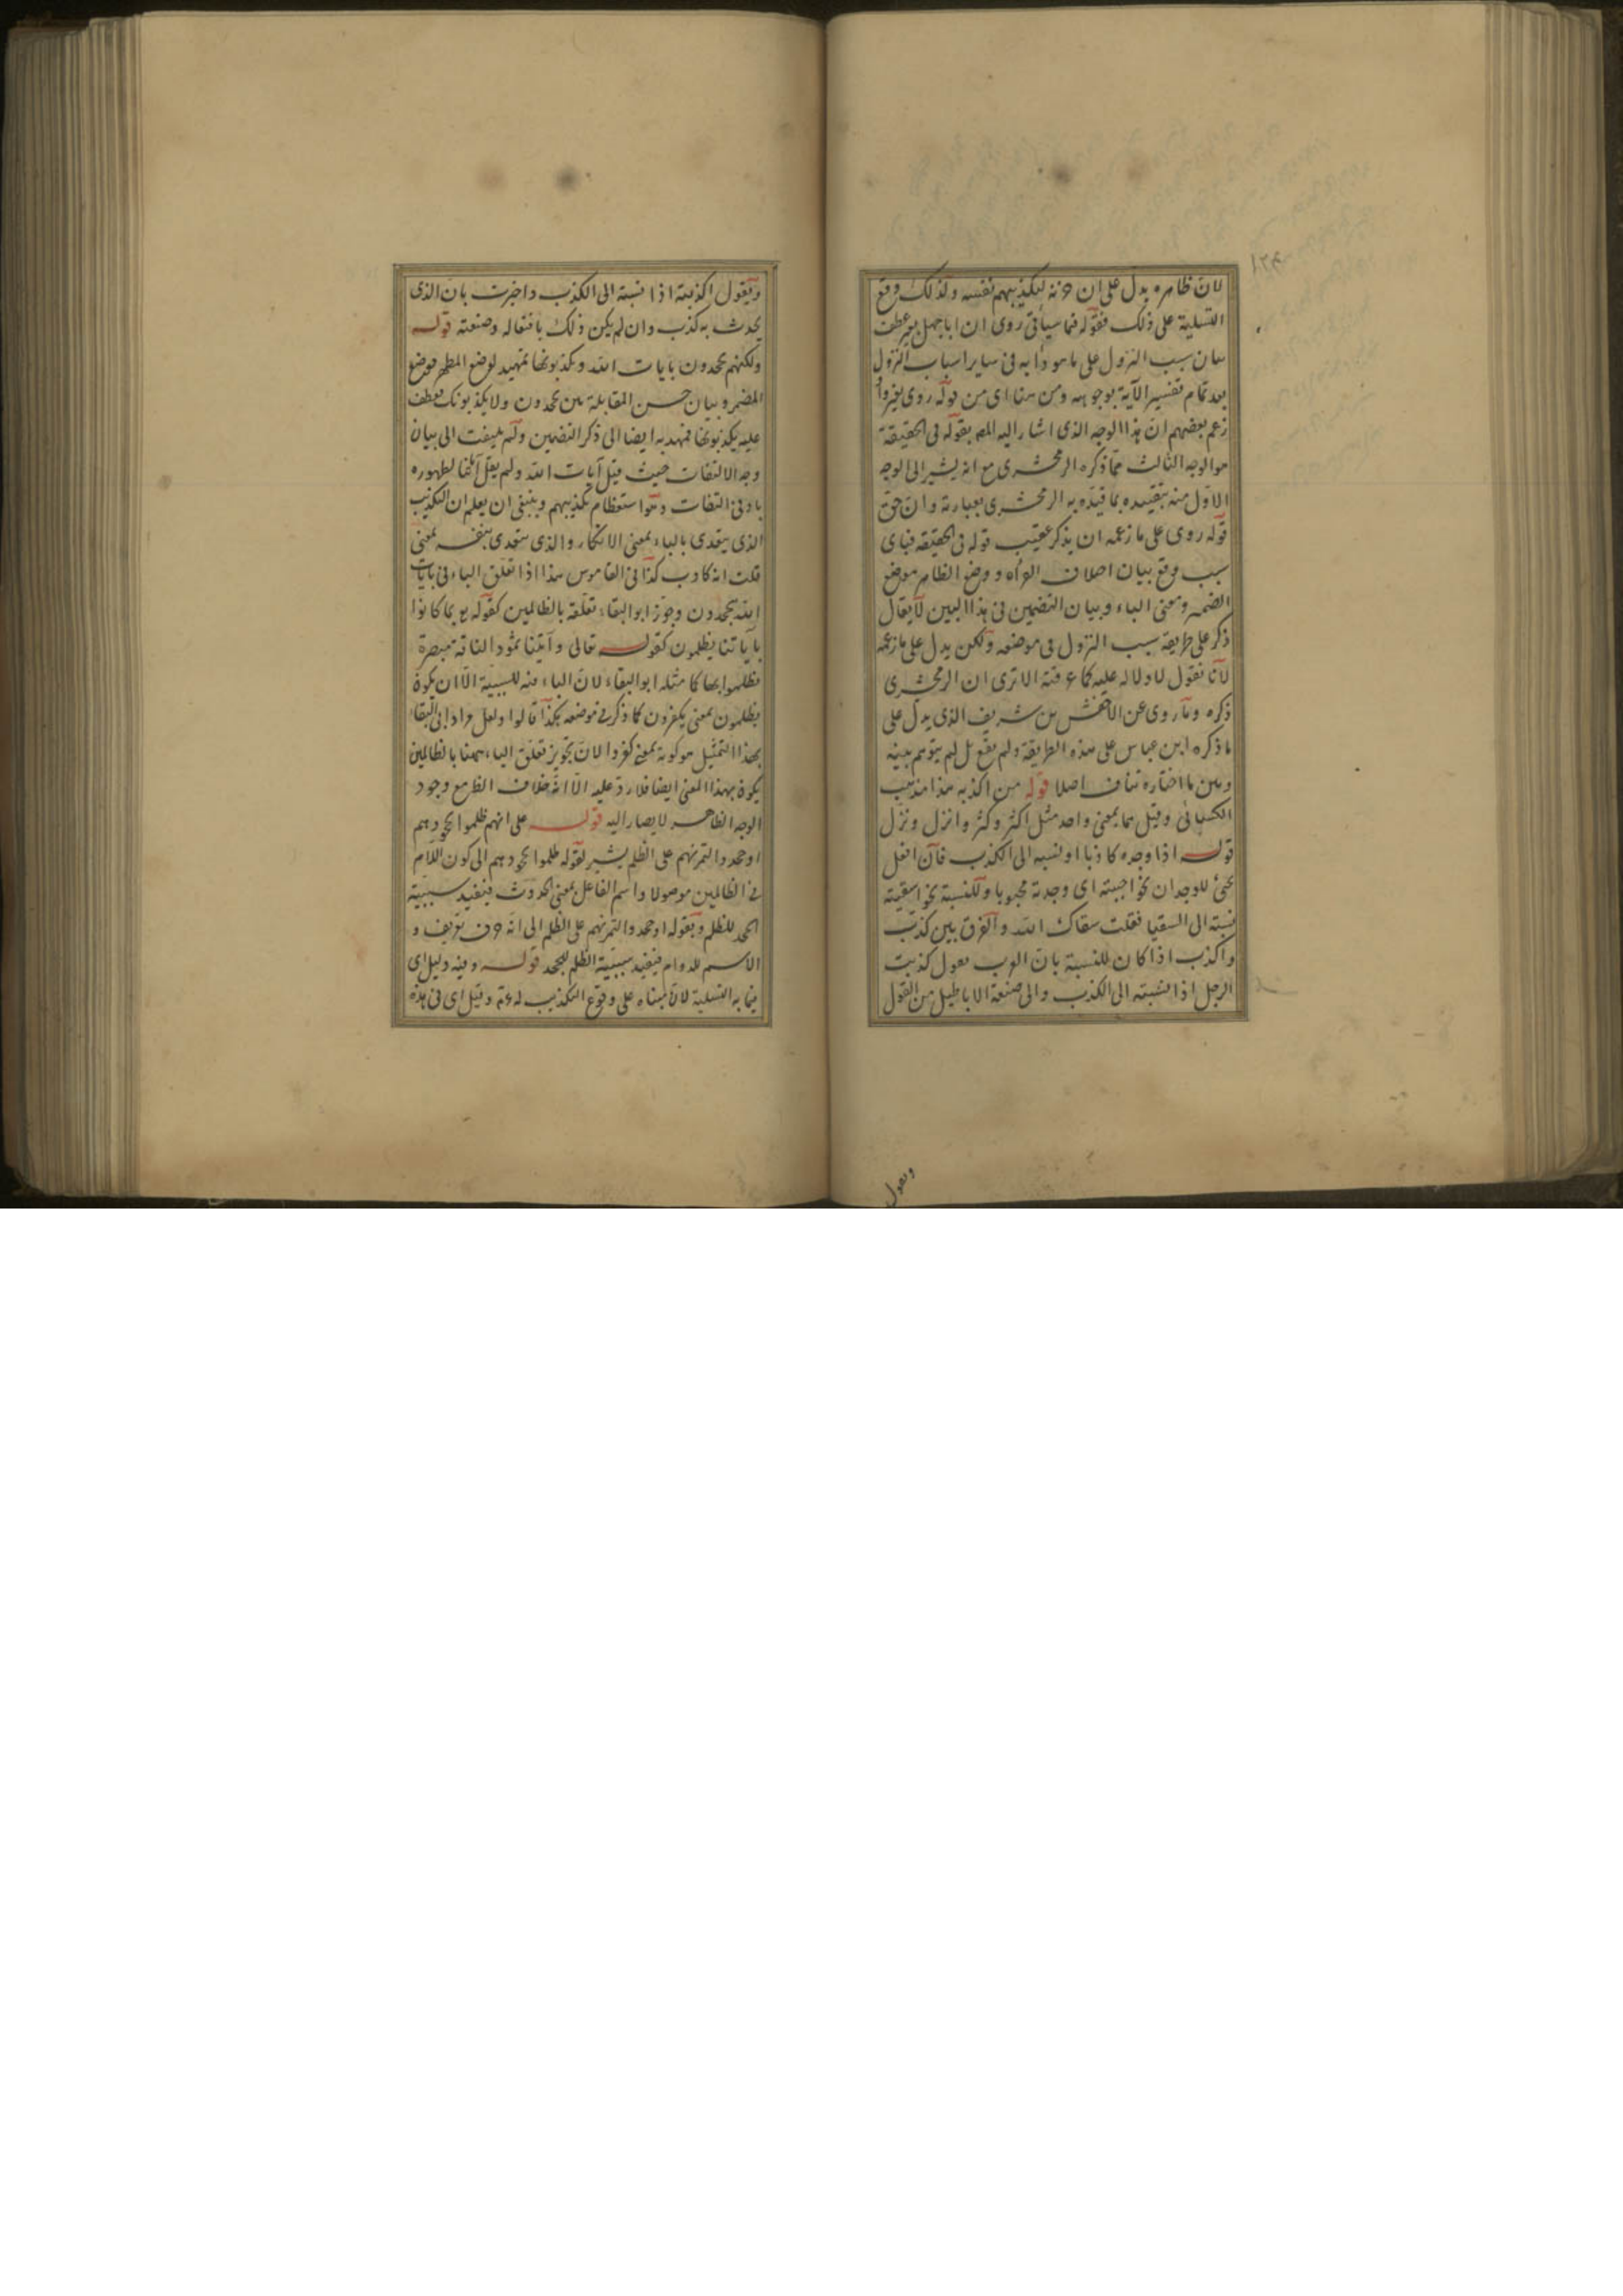 لان ظاهره يدل على ان حزنه لتكذيبهم نفسه ولذلك وقع
التسلية على ذلك فقوله فيما سيأتى روى ان ابا جهل عطف
بيان سبب النزول على ما هو دأبه فى ساير اسباب النزول
بعد تمام تفسير الآية بوجوهه ومن هنا اى من قوله روى
زعم بعضهم ان هذا الوجه الذى اشار اليه المص بقوله فى الحقيقة
هو الوجه الثالث مما ذكره الزمخشرى مع انه يشير الى الوجه
الاول منه بتقييده بما قيده به الزمخشرى بعبارته وان حق
قوله روى على ما زعمه ان يذكر عقيب قوله فى الحقيقة فباى
سبب وقع بيان اختلاف القراءة ووضع الظاهر موضع
الضمير ومعنى الباء وبيان التضمين فى هذا البين لا يقال
ذكر على طريقة سبب النزول فى موضعه ولكن يدل على ما زعمه
لانا نقول لا دلالة عليه كما عرفته الا ترى ان الزمخشرى
ذكره وما روى عن الاخنس بن شريف الذى يدل على
ما ذكره ابن عباس على هذه الطريقة ولم يقل لم يتوهم بينه
وبين ما اختاره تناف اصلا قوله من اكذبه هذا مذهب
الكسائى وقيل هما بمعنى واحد مثل اكثر وكثر وانزل ونزل
قوله اذا وجده كاذبا او نسبه الى الكذب فان افعل
يجئ للوجدان نحو احببته اى وجدته محبوبا وللنسبة نحو اسقيته
نسبته الى السقيا فقلت سقاك الله والفرق بين كذب
واكذب اذا كان للنسبة بان العرب يقول كذبت
الرجل اذا نسبته الى الكذب والى صنعة الاباطيل من القول
ويقول
ويقول اكذبته اذا نسبته الى الكذب واخبرت بان الذى
يحدث به كذب وان لم يكن ذلك بافتعاله وصنعته قوله
ولكنهم يجحدون بايات الله ويكذبونها تمهيد لوضع المظهر موضع
المضمر وبيان حسن المقابلة بين يجحدون ولا يكذبونك فعطف
عليه يكذبونها فمهد به ايضا الى ذكر التضمين ولم يلتفت الى بيان
وجه الالتفات حيث قيل آيات الله ولم يقل آياتنا لظهوره
بادنى التفات وهو استعظام تكذيبهم وينبغى ان يعلم ان التكذيب
الذى يتعدى بالباء بمعنى الانكار والذى يتعدى بنفسه بمعنى
قلت انه كاذب كذا فى القاموس هذا اذا تعلق الباء فى بايات
الله بيجحدون وجوز ابو البقاء تعلقه بالظالمين كقوله تع بما كانوا
بآياتنا يظلمون كقوله تعالى وآتينا ثمود الناقة مبصرة
فظلموا بها كما مثله ابو البقاء لان الباء فيه للسببية الا ان يكون
يظلمون بمعنى يكفرون كما ذكر فى موضعه هكذا قالوا ولعل مراد ابى البقاء
بهذا التمثيل هو كونه بمعنى كفروا لان تجويز تعلق الباء ههنا بالظالمين
يكون بهذا المعنى ايضا فلا رد عليه الا انه خلاف الظ مع وجود
الوجه الظاهر لا يصار اليه قوله على انهم ظلموا بجحودهم
او جحدوا لتمرنهم على الظلم يشير بقوله ظلموا بجحودهم الى كون اللام
فى الظالمين موصولا واسم الفاعل بمعنى الحدوث فيفيد سببية
الجحد للظلم وبقوله او جحدوا لتمرنهم على الظلم الى انه حرف تعريف و
الاسم للدوام فيفيد سببية الظلم للجحد قوله وفيه دليل اى
فيما به التسلية لان مبناه على وقوع التكذيب له عم وقيل اى فى هذه